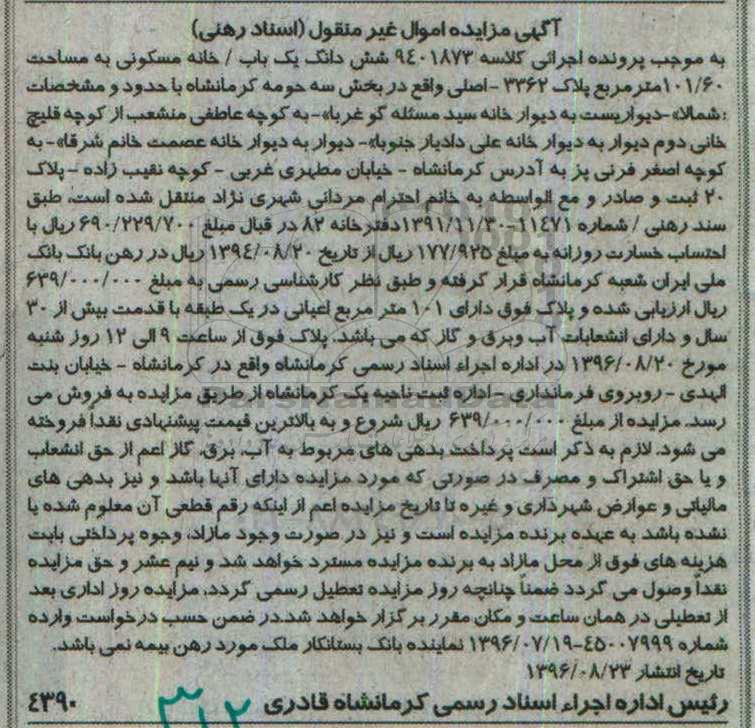 آگهی مزایده اموال غیر منقول (اسناد رهنی)
به موجب پرونده اجرائی کلاسه ۹۴۰۱۸۷۳ شش دانگ یک باب / خانه مسکونی به مساحت
۱۰۱/۶۰ مترمربع پلاک ۳۳۶۲ -اصلی واقع در بخش سه حومه کرمانشاه با حدود و مشخصات
:شمالاً- دیواریست به دیوار خانه سید مسئله گو غرباً- به کوچه عاطفی منشعب از کوچه قلیچ
خانی دوم دیوار به دیوار خانه علی دادیار جنوباً- دیوار به دیوار خانه عصمت خانم شرقاً- به
کوچه اصغر فرنی پز به آدرس کرمانشاه - خیابان مطهری غربی - کوچه نقیب زاده - پلاک
۲۰ ثبت و صادر و مع الواسطه به خانم احترام مردانی شهری نژاد منتقل شده است، طبق
سند رهنی / شماره ۱۱۴۷۱-۱۳۹۱/۱۱/۳۰ دفترخانه ۸۲ در قبال مبلغ ۶۹۰/۲۲۹/۷۰۰ ریال با
احتساب خسارت روزانه به مبلغ ۱۷۷/۹۲۵ ریال از تاریخ ۱۳۹۴/۰۸/۲۰ ریال در رهن بانک بانک
ملی ایران شعبه کرمانشاه قرار گرفته و طبق نظر کارشناسی رسمی به مبلغ ۶۳۹/۰۰۰/۰۰۰
ریال ارزیابی شده و پلاک فوق دارای ۱۰۱ متر مربع اعیانی در یک طبقه با قدمت بیش از ۳۰
سال و دارای انشعابات آب وبرق و گاز که می باشد. پلاک فوق از ساعت ۹ الی ۱۲ روز شنبه
مورخ ۱۳۹۶/۰۸/۲۰ در اداره اجراء اسناد رسمی کرمانشاه واقع در کرمانشاه - خیابان بنت
الهدی - روبروی فرمانداری - اداره ثبت ناحیه یک کرمانشاه از طریق مزایده به فروش می
رسد. مزایده از مبلغ ۶۳۹/۰۰۰/۰۰۰ ریال شروع و به بالاترین قیمت پیشنهادی نقداً فروخته
می شود. لازم به ذکر است پرداخت بدهی های مربوط به آب، برق، گاز اعم از حق انشعاب
و یا حق اشتراک و مصرف در صورتی که مورد مزایده دارای آنها باشد و نیز بدهی های
مالیاتی و عوارض شهرداری و غیره تا تاریخ مزایده اعم از اینکه رقم قطعی آن معلوم شده یا
نشده باشد به عهده برنده مزایده است و نیز در صورت وجود مازاد، وجوه پرداختی بابت
هزینه های فوق از محل مازاد به برنده مزایده مسترد خواهد شد و نیم عشر و حق مزایده
نقداً وصول می گردد ضمناً چنانچه روز مزایده تعطیل رسمی گردد، مزایده روز اداری بعد
از تعطیلی در همان ساعت و مکان مقرر برگزار خواهد شد.در ضمن حسب درخواست وارده
شماره ۴۵۰۰۷۹۹۹-۱۳۹۶/۰۷/۱۹ نماینده بانک بستانکار ملک مورد رهن بیمه نمی باشد.
تاریخ انتشار ۱۳۹۶/۰۸/۲۳
رئیس اداره اجراء اسناد رسمی کرمانشاه قادری ۴۳۹۰
۳۱۲